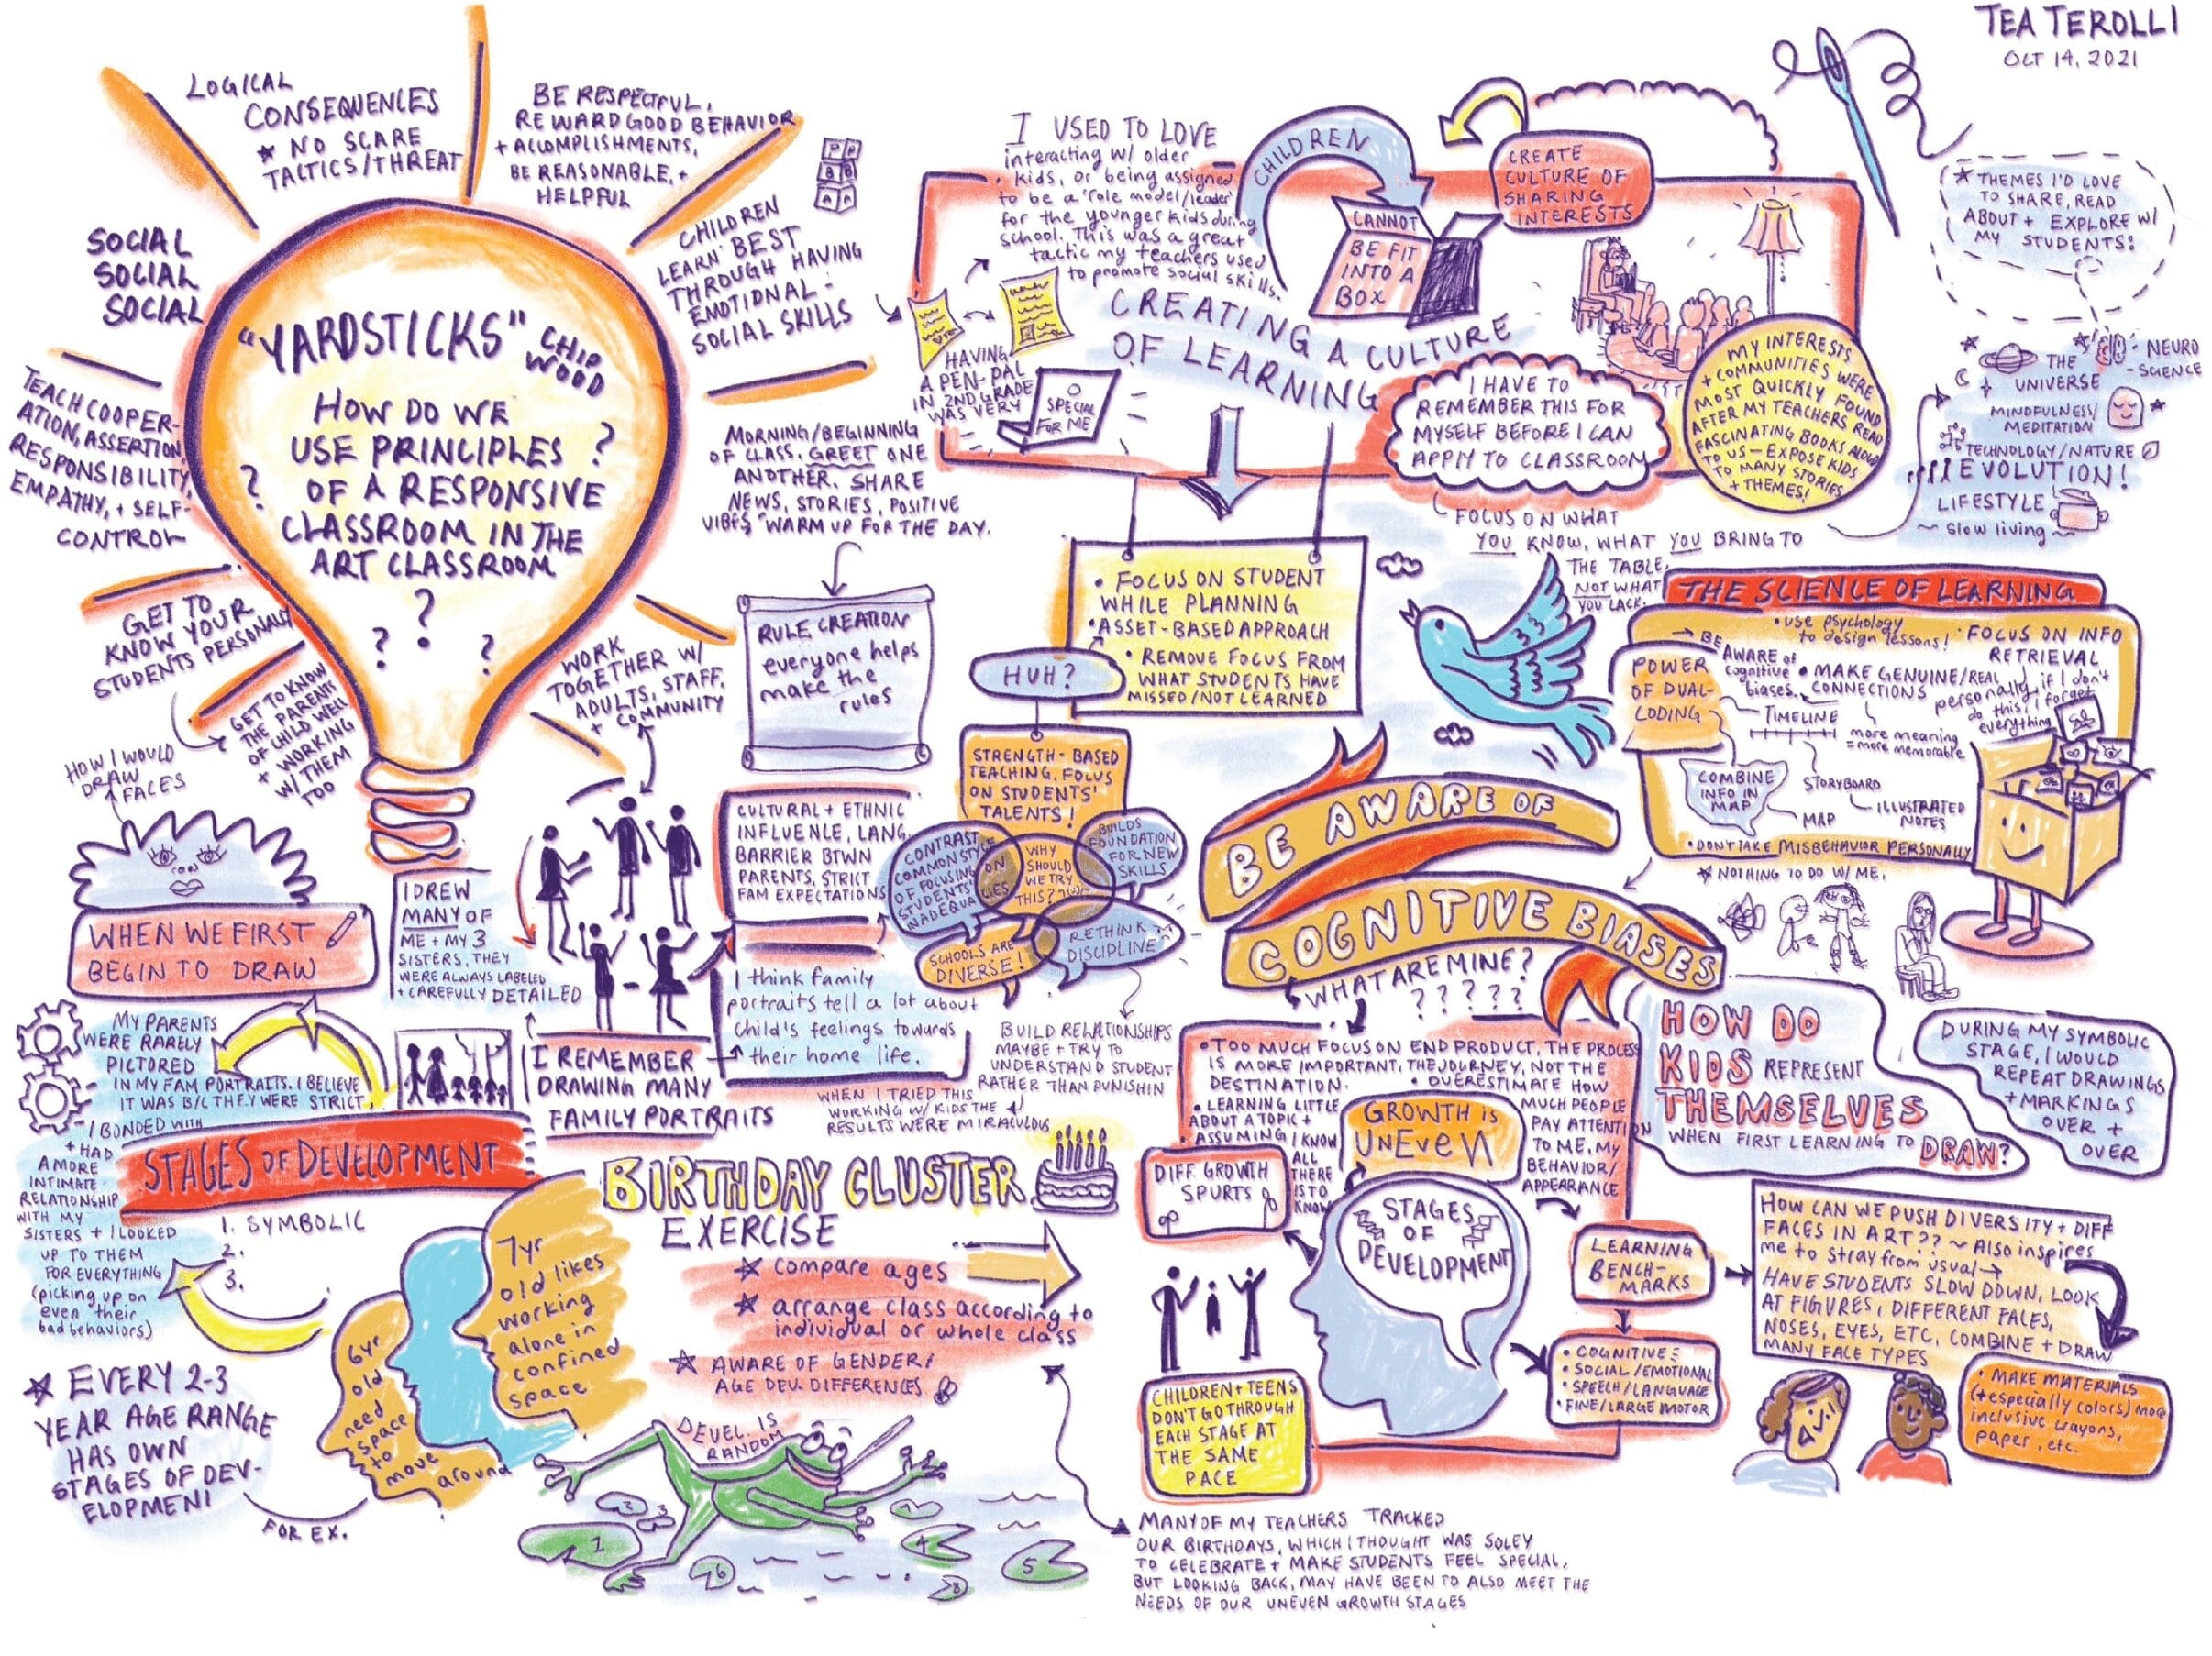 TEA TEROLLI
OCT 14, 2021
LOGICAL
CONSEQUENCES
* NO SCARE
TACTICS/THREAT
BE RESPECTFUL,
REWARD GOOD BEHAVIOR
+ ACCOMPLISHMENTS,
BE REASONABLE, +
HELPFUL
SOCIAL
SOCIAL
SOCIAL
CHILDREN
LEARN BEST
THROUGH HAVING
EMOTIONAL -
SOCIAL SKILLS
"YARDSTICKS" CHIP
WOOD
HOW DO WE
USE PRINCIPLES ?
? OF A RESPONSIVE
CLASSROOM IN THE
ART CLASSROOM
? ? ?
TEACH COOPER-
ATION, ASSERTION,
RESPONSIBILITY,
EMPATHY, + SELF-
CONTROL
MORNING/BEGINNING
OF CLASS, GREET ONE
ANOTHER. SHARE
NEWS, STORIES, POSITIVE
VIBES "WARM UP FOR THE DAY.
GET TO
KNOW YOUR
STUDENTS PERSONALLY
GET TO KNOW
THE PARENTS
OF CHILD WELL
+ WORKING
W/ THEM
TOO
WORK
TOGETHER W/
ADULTS, STAFF,
+ COMMUNITY
RULE CREATION
everyone helps
make the
rules
HOW I WOULD
DRAW
FACES
WHEN WE FIRST
BEGIN TO DRAW
I DREW
MANY OF
ME + MY 3
SISTERS, THEY
WERE ALWAYS LABELED
+ CAREFULLY DETAILED
CULTURAL + ETHNIC
INFLUENCE, LANG.
BARRIER BTWN
PARENTS, STRICT
FAM EXPECTATIONS
I think family
portraits tell a lot about
child's feelings towards
their home life.
I REMEMBER
DRAWING MANY
FAMILY PORTRAITS
MY PARENTS
WERE RARELY
PICTORED
IN MY FAM PORTRAITS. I BELIEVE
IT WAS B/C THEY WERE STRICT,
I BONDED WITH
+ HAD
A MORE
INTIMATE
RELATIONSHIP
WITH MY
SISTERS + I LOOKED
UP TO THEM
FOR EVERYTHING
(picking up on
even their
bad behaviors)
STAGES OF DEVELOPMENT
1. SYMBOLIC
2.
3.
* EVERY 2-3
YEAR AGE RANGE
HAS OWN
STAGES OF DEV-
ELOPMENT
FOR EX.
6yr
old
need
space
to
move
around
7yr
old likes
working
alone in
confined
space
BIRTHDAY CLUSTER
EXERCISE
* compare ages
* arrange class according to
individual or whole class
* AWARE OF GENDER/
AGE DEV. DIFFERENCES
DEVEL. IS
RANDOM
1
2
3
4
5
6
7
8
I USED TO LOVE
interacting w/ older
kids, or being assigned
to be a 'role model/leader'
for the younger kids during
school. This was a great
tactic my teachers used
to promote social skills.
HAVING
A PEN-PAL
IN 2ND GRADE
WAS VERY
SPECIAL
FOR ME
CREATING A CULTURE
OF LEARNING
CHILDREN
CANNOT
BE FIT
INTO A
BOX
CREATE
CULTURE OF
SHARING
INTERESTS
I HAVE TO
REMEMBER THIS FOR
MYSELF BEFORE I CAN
APPLY TO CLASSROOM
MY INTERESTS
+ COMMUNITIES WERE
MOST QUICKLY FOUND
AFTER MY TEACHERS READ
FASCINATING BOOKS ALOUD
TO US - EXPOSE KIDS
TO MANY STORIES
+ THEMES!
* THEMES I'D LOVE
TO SHARE, READ
ABOUT + EXPLORE W/
MY STUDENTS:
THE
UNIVERSE
NEURO
-SCIENCE
MINDFULNESS/
MEDITATION
TECHNOLOGY/NATURE
EVOLUTION!
LIFESTYLE
~ slow living ~
FOCUS ON WHAT
YOU KNOW, WHAT YOU BRING TO
THE TABLE,
NOT WHAT
YOU LACK.
• FOCUS ON STUDENT
WHILE PLANNING
• ASSET-BASED APPROACH
• REMOVE FOCUS FROM
WHAT STUDENTS HAVE
MISSED/NOT LEARNED
HUH?
STRENGTH-BASED
TEACHING, FOCUS
ON STUDENTS'
TALENTS!
CONTRAST
COMMON STYLE
OF FOCUSING ON
STUDENTS'
INADEQUACIES
WHY
SHOULD
WE TRY
THIS?
BUILDS
FOUNDATION
FOR NEW
SKILLS
SCHOOLS ARE
DIVERSE!
RETHINK
DISCIPLINE
BUILD RELATIONSHIPS
MAYBE + TRY TO
UNDERSTAND STUDENT
RATHER THAN PUNISHIN
WHEN I TRIED THIS
WORKING W/ KIDS THE
RESULTS WERE MIRACULOUS
THE SCIENCE OF LEARNING
• use psychology
to design lessons!
• FOCUS ON INFO
RETRIEVAL
personally, if I don't
do this, I forget
everything
BE
AWARE of
cognitive
biases.
• MAKE GENUINE/REAL
CONNECTIONS
more meaning
= more memorable
POWER
OF DUAL-
CODING
TIMELINE
COMBINE
INFO IN
MAP
STORYBOARD
MAP
ILLUSTRATED
NOTES
• DON'T TAKE MISBEHAVIOR PERSONALLY
* NOTHING TO DO W/ ME.
BE AWARE OF
COGNITIVE BIASES
WHAT ARE MINE?
? ? ? ? ?
• TOO MUCH FOCUS ON END PRODUCT, THE PROCESS
IS MORE IMPORTANT. THE JOURNEY, NOT THE
DESTINATION.
• LEARNING LITTLE
ABOUT A TOPIC +
ASSUMING I KNOW
ALL
THERE
IS TO
KNOW
• OVERESTIMATE HOW
MUCH PEOPLE
PAY ATTENTION
TO ME, MY
BEHAVIOR/
APPEARANCE
GROWTH is
UNEVEN
DIFF. GROWTH
SPURTS
STAGES
OF
DEVELOPMENT
LEARNING
BENCH-
MARKS
• COGNITIVE
• SOCIAL/EMOTIONAL
• SPEECH/LANGUAGE
• FINE/LARGE MOTOR
CHILDREN + TEENS
DON'T GO THROUGH
EACH STAGE AT
THE SAME
PACE
MANY OF MY TEACHERS TRACKED
OUR BIRTHDAYS, WHICH I THOUGHT WAS SOLEY
TO CELEBRATE + MAKE STUDENTS FEEL SPECIAL,
BUT LOOKING BACK, MAY HAVE BEEN TO ALSO MEET THE
NEEDS OF OUR UNEVEN GROWTH STAGES
HOW DO
KIDS REPRESENT
THEMSELVES
WHEN FIRST LEARNING TO DRAW?
DURING MY SYMBOLIC
STAGE, I WOULD
REPEAT DRAWINGS
+ MARKINGS
OVER +
OVER
HOW CAN WE PUSH DIVERSITY + DIFF
FACES IN ART?? ~ Also inspires
me to stray from usual →
HAVE STUDENTS SLOW DOWN, LOOK
AT FIGURES, DIFFERENT FACES,
NOSES, EYES, ETC. COMBINE + DRAW
MANY FACE TYPES
• MAKE MATERIALS
(+ especially colors) more
inclusive crayons,
paper, etc.